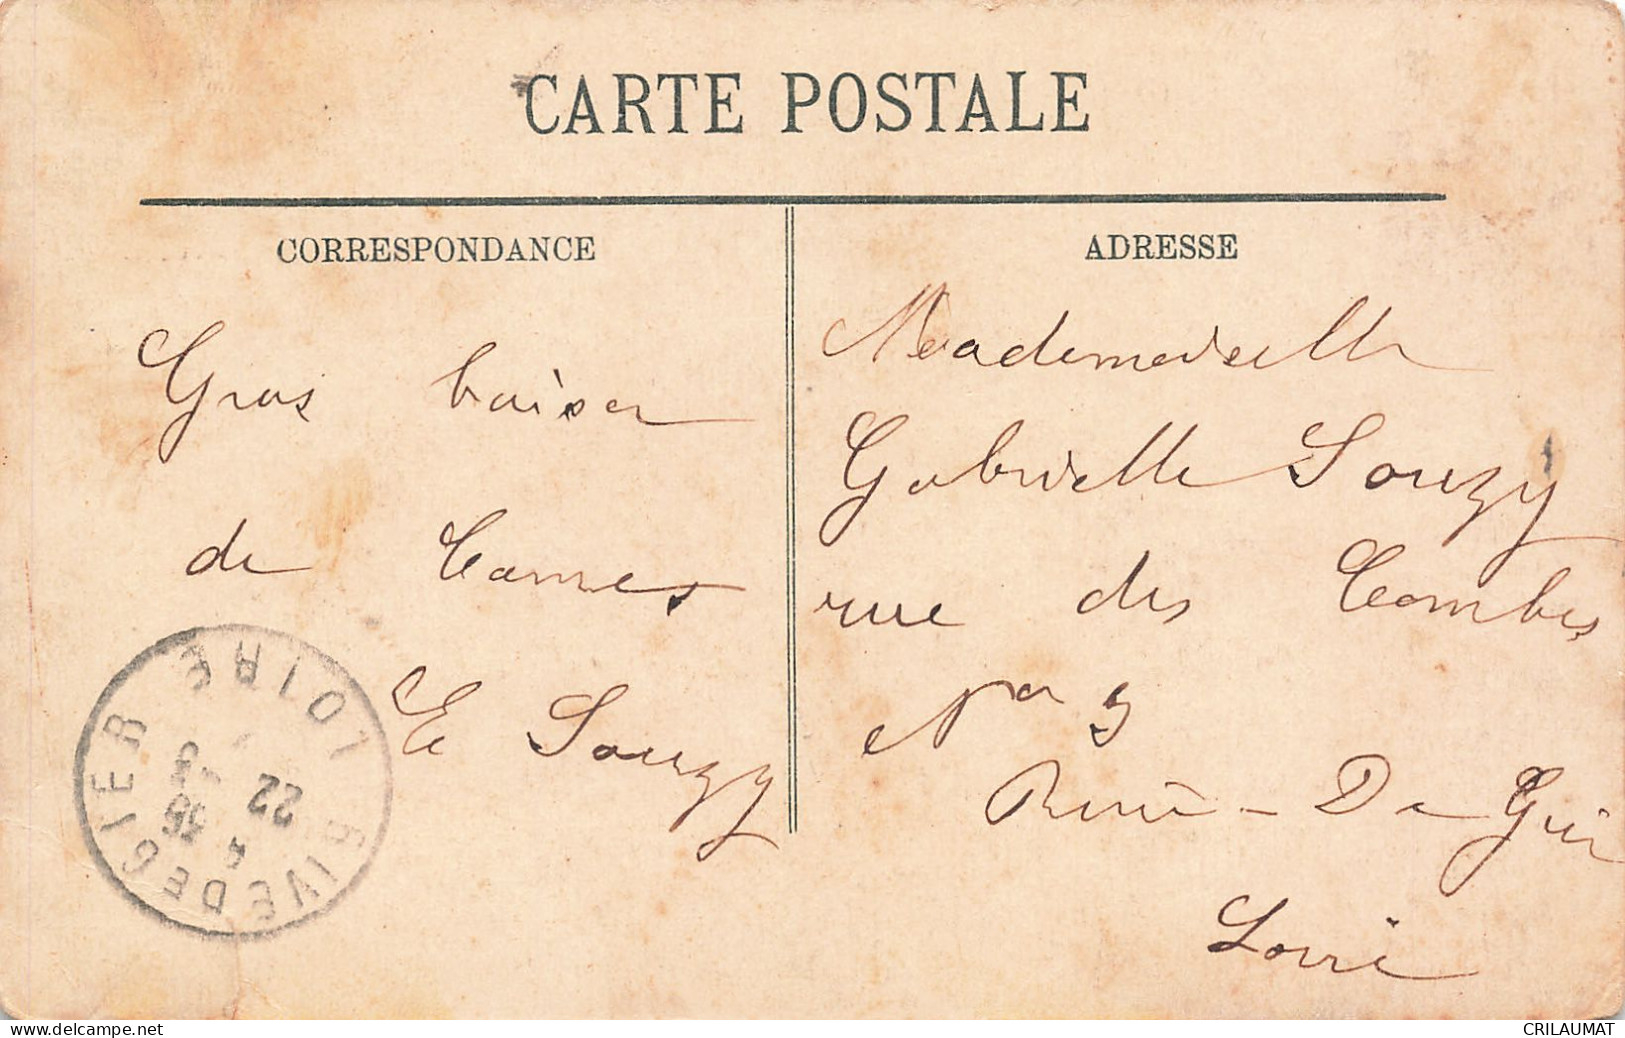 CARTE POSTALE
CORRESPONDANCE
Gros baiser
de Cannes
E Souzy
ADRESSE
Mademoiselle
Gabrielle Souzy
rue des Combes
No 9
Rive-De Gier
Loire
RIVE DE GIER LOIRE
22
www.delcampe.net
CRILAUMAT